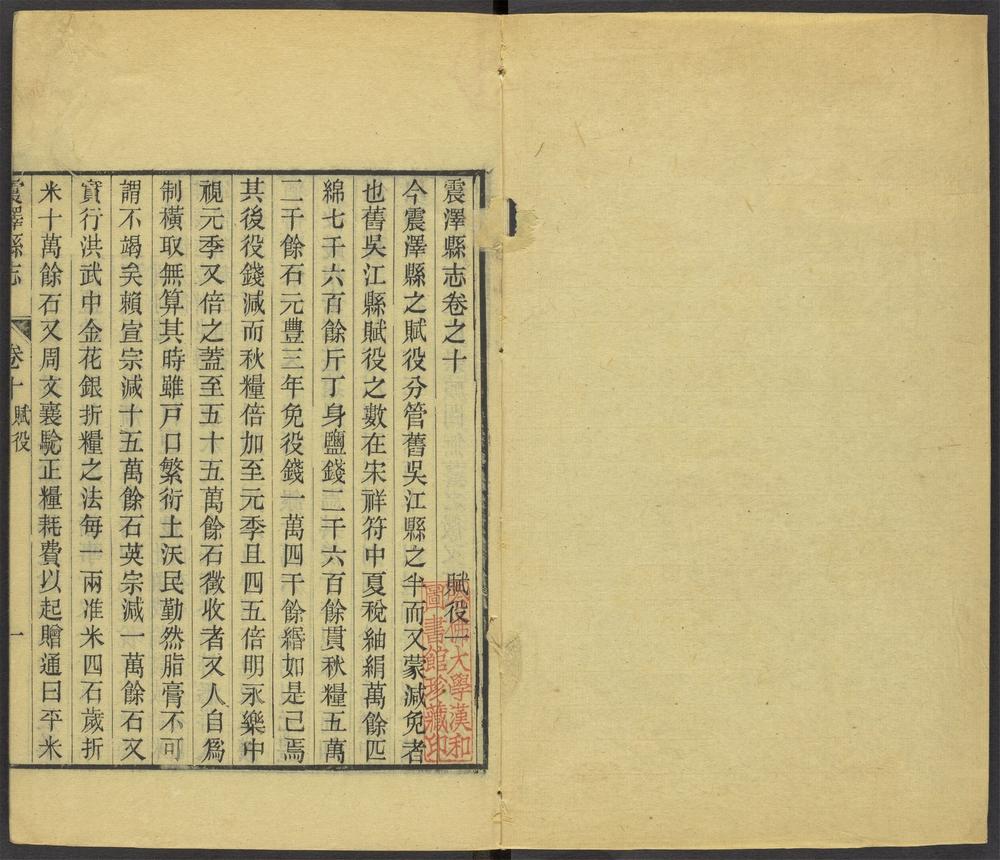 震澤縣志卷之十
賦役一
今震澤縣之賦役分管舊吳江縣之半而又蒙減免者
也舊吳江縣賦役之數在宋祥符中夏稅紬絹萬餘匹
綿七千六百餘斤丁身鹽錢二千六百餘貫秋糧五萬
二千餘石元豐三年免役錢一萬四千餘緡如是已焉
其後役錢減而秋糧倍加至元季且四五倍明永樂中
視元季又倍之蓋至五十五萬餘石徵收者又人自爲
制橫取無算其時雖戸口繁衍土沃民勤然脂膏不可
謂不竭矣賴宣宗減十五萬餘石英宗減一萬餘石又
實行洪武中金花銀折糧之法每一兩准米四石歲折
米十萬餘石又周文襄驗正糧耗費以起贈通曰平米
震澤縣志
卷十
賦役
一
大學漢和
圖書館珍藏印